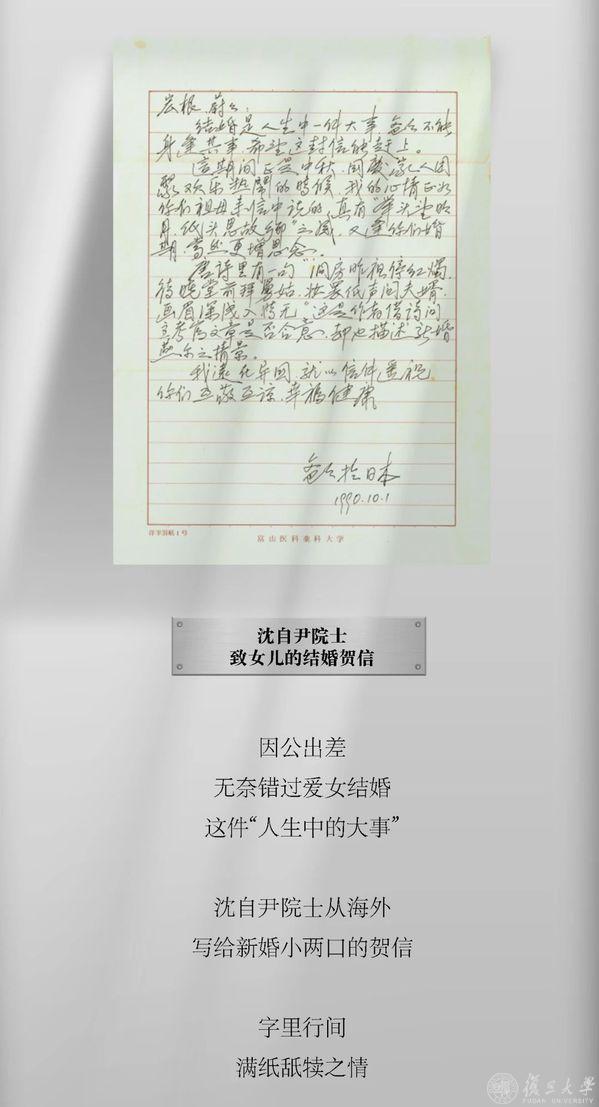 宏根、蔚：
结婚是人生中一件大事，爸爸不能
身逢其事，希望这封信能赶上。
这期间正是中秋、国庆，家人团
聚欢乐热闹的时候，我的心情正如
你们祖母来信中说的，真有“举头望明
月，低头思故乡”之感，又逢你们婚
期，当然更增思念。
唐诗里有一句“洞房昨夜停红烛，
待晓堂前拜舅姑，妆罢低声问夫婿，
画眉深浅入时无”这是作者借诗问
主考官文章是否合意，却也描述新婚
燕尔之情景。
我远在异国，就以信件遥祝
你们互敬互谅，幸福健康
爸爸于日本
1990.10.1
富山医科薬科大学
沈自尹院士
致女儿的结婚贺信
因公出差
无奈错过爱女结婚
这件“人生中的大事”
沈自尹院士从海外
写给新婚小两口的贺信
字里行间
满纸舐犊之情
復旦大學
FUDAN UNIVERSITY